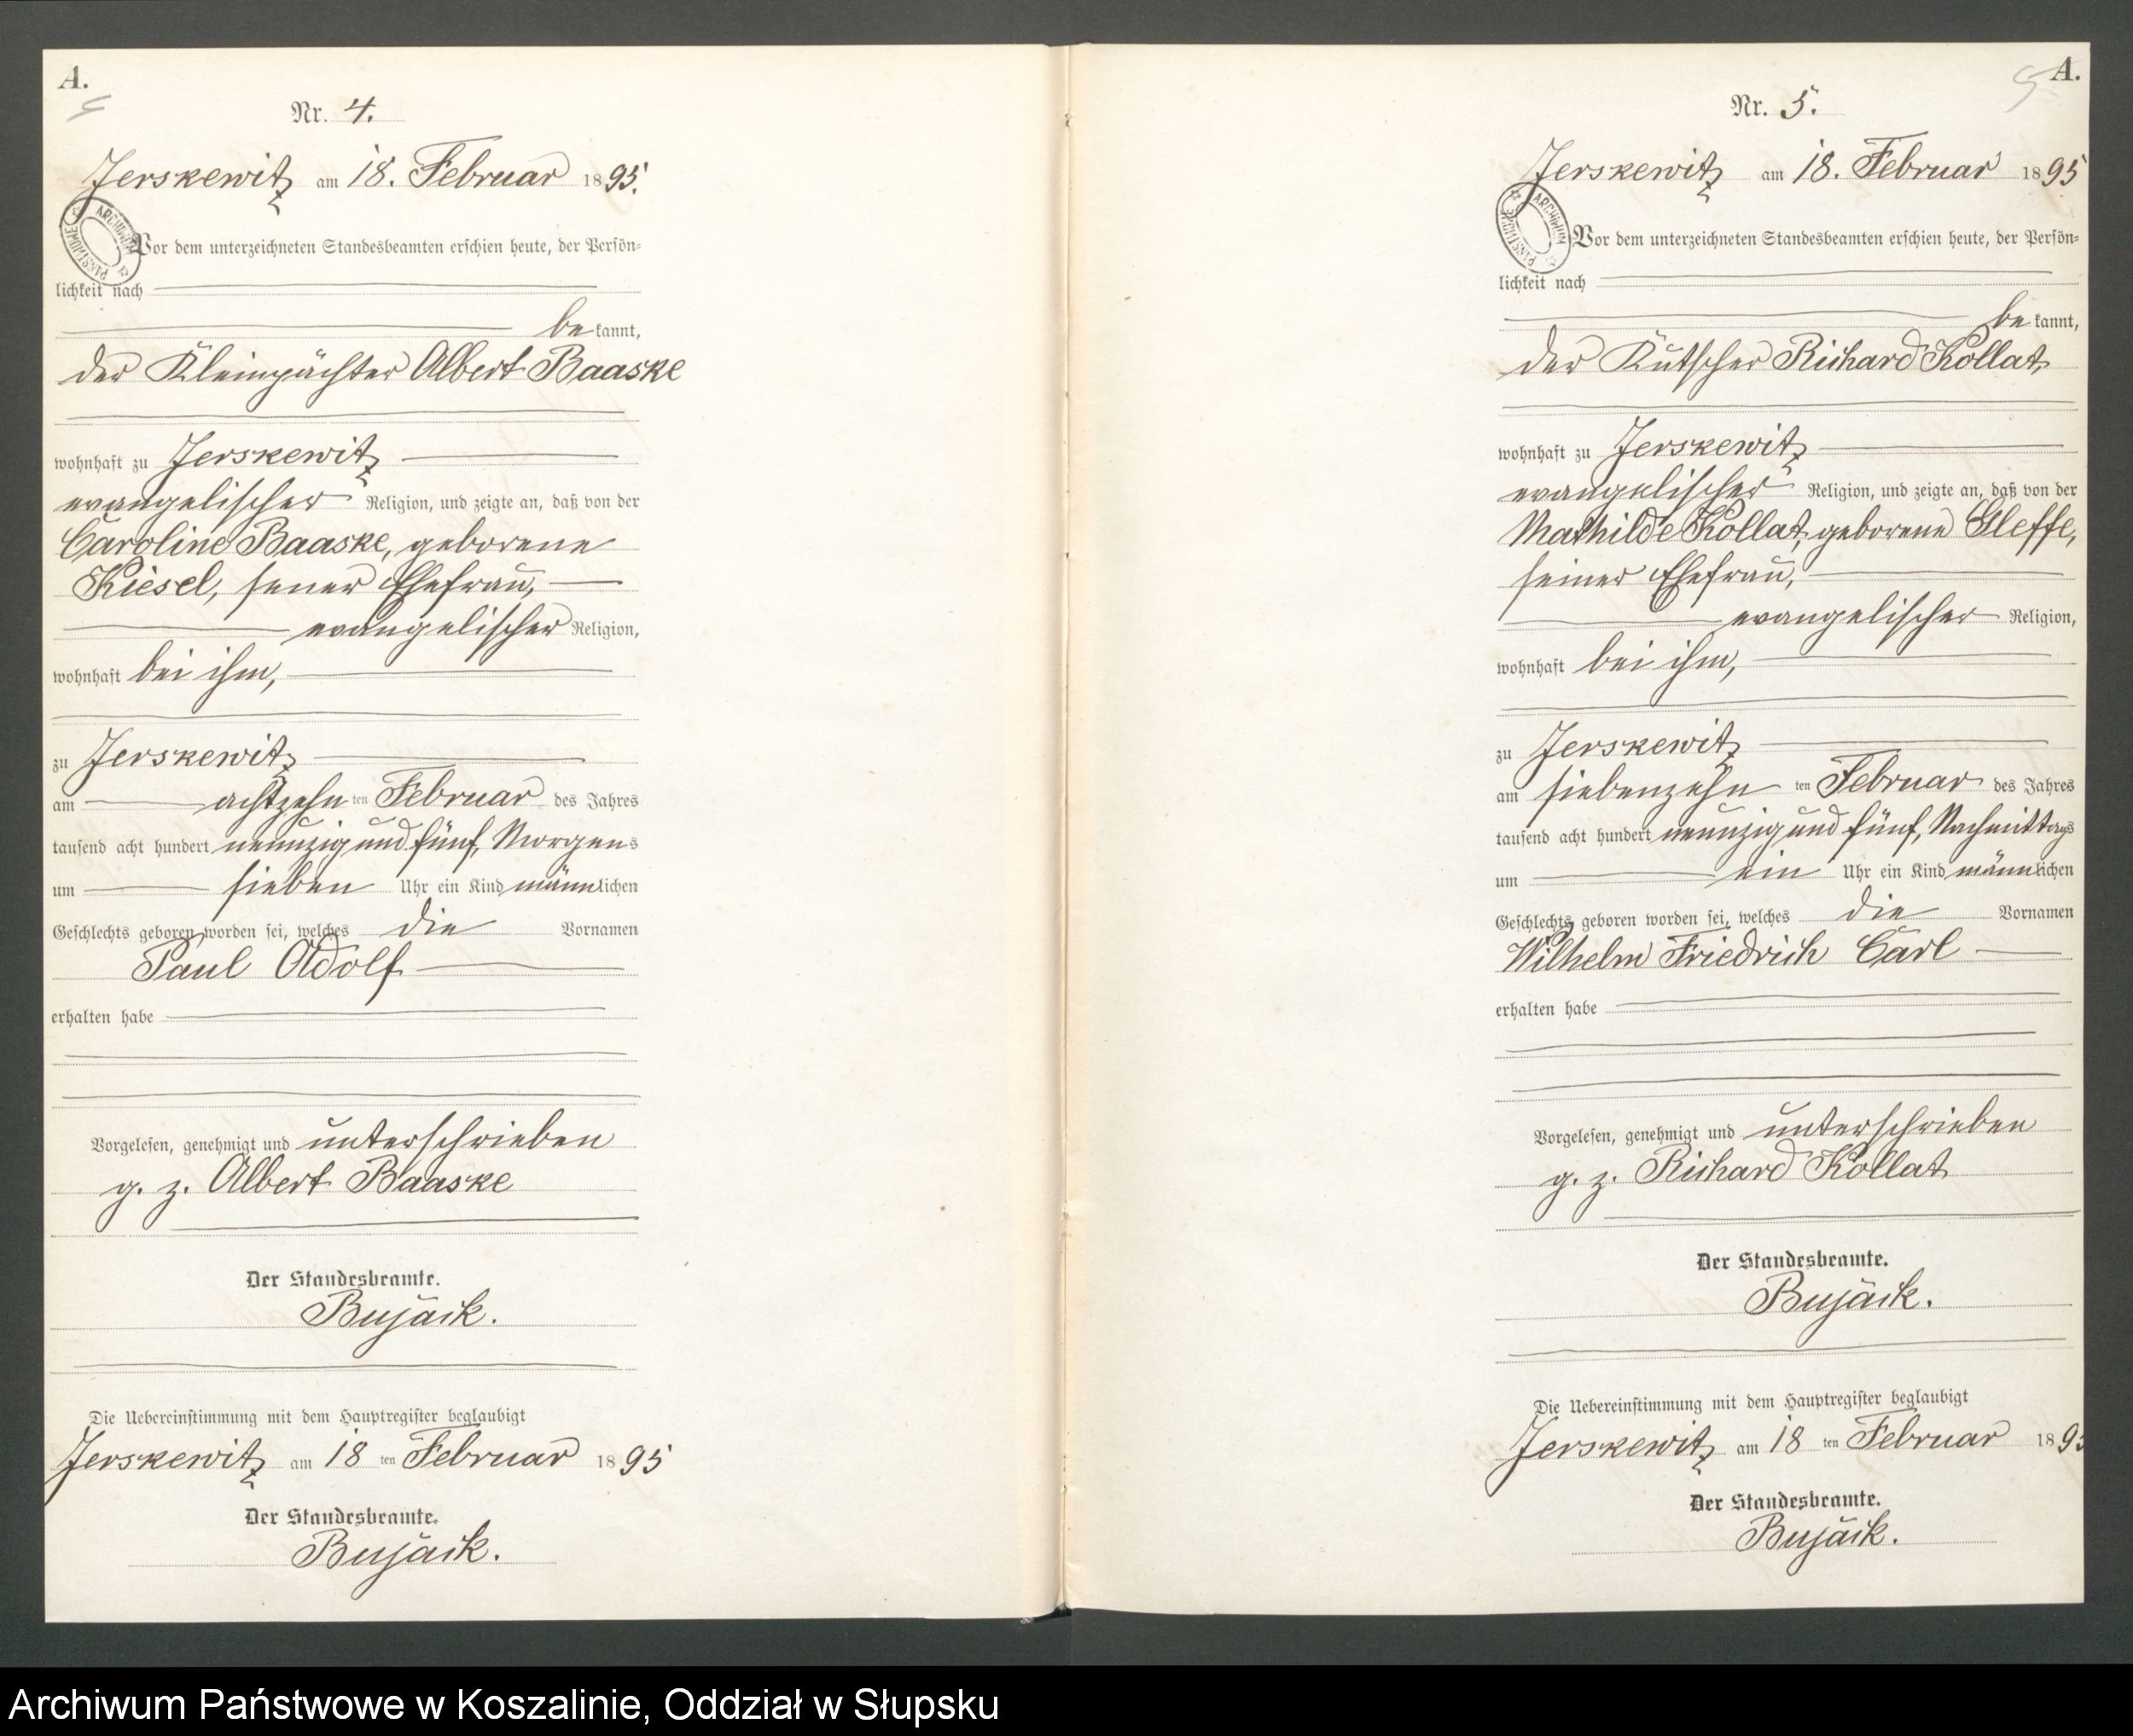 A.
5
Nr. 4.
Jerskewitz am 18. Februar 1895.
ARCHIWUM PAŃSTWOWE
Vor dem unterzeichneten Standesbeamten erschien heute, der Persön-
lichkeit nach
bekannt,
der Kleinpächter Albert Baaske
wohnhaft zu Jerskewitz
evangelischer Religion, und zeigte an, daß von der
Caroline Baaske, geborene
Kiesel, seiner Ehefrau,
evangelischer Religion,
wohnhaft bei ihm,
zu Jerskewitz
am achtzehnten Februar des Jahres
tausend acht hundert neunzig und fünf, Morgens
um sieben Uhr ein Kind männlichen
Geschlechts geboren worden sei, welches die Vornamen
Paul Adolf
erhalten habe
Vorgelesen, genehmigt und unterschrieben
g. z. Albert Baaske
Der Standesbeamte.
Bujack.
Die Uebereinstimmung mit dem Hauptregister beglaubigt
Jerskewitz am 18 ten Februar 1895
Der Standesbeamte.
Bujack.
A.
5
Nr. 5.
Jerskewitz am 18. Februar 1895
ARCHIWUM PAŃSTWOWE
Vor dem unterzeichneten Standesbeamten erschien heute, der Persön-
lichkeit nach
bekannt,
der Kutscher Richard Kollat,
wohnhaft zu Jerskewitz
evangelischer Religion, und zeigte an, daß von der
Mathilde Kollat, geborene Gleffe,
seiner Ehefrau,
evangelischer Religion,
wohnhaft bei ihm,
zu Jerskewitz
am siebenzehn ten Februar des Jahres
tausend acht hundert neunzig und fünf, Nachmittags
um ein Uhr ein Kind männlichen
Geschlechts geboren worden sei, welches die Vornamen
Wilhelm Friedrich Carl
erhalten habe
Vorgelesen, genehmigt und unterschrieben
g. z. Richard Kollat
Der Standesbeamte.
Bujack.
Die Uebereinstimmung mit dem Hauptregister beglaubigt
Jerskewitz am 18 ten Februar 1895
Der Standesbeamte.
Bujack.
Archiwum Państwowe w Koszalinie, Oddział w Słupsku